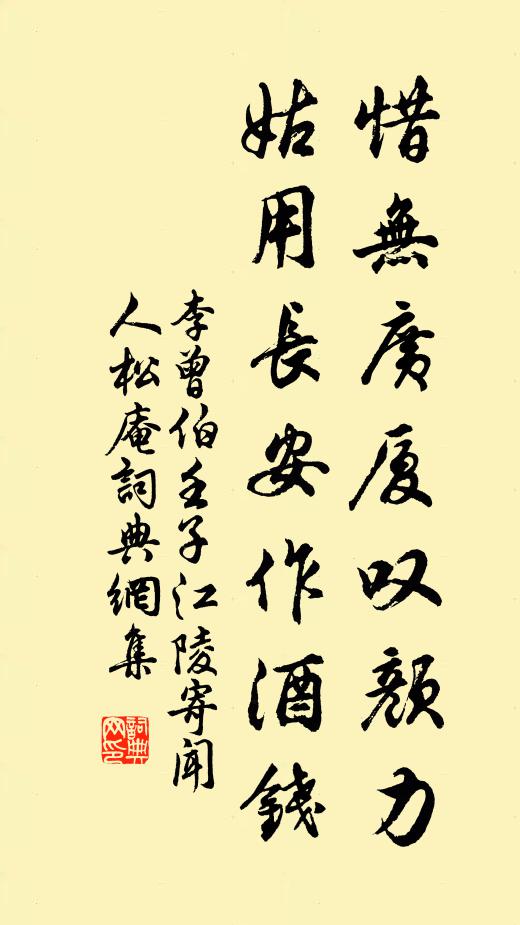 惜無廣厦叹顏力
姑用長安作酒錢
李曾伯壬子江陵寄聞
人松庵詞典網集
詞典
网印